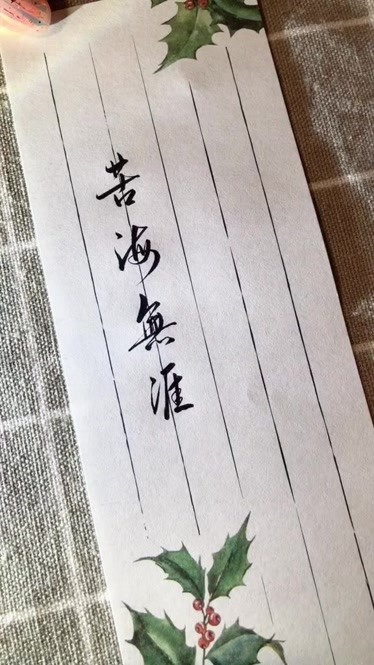 苦海無涯